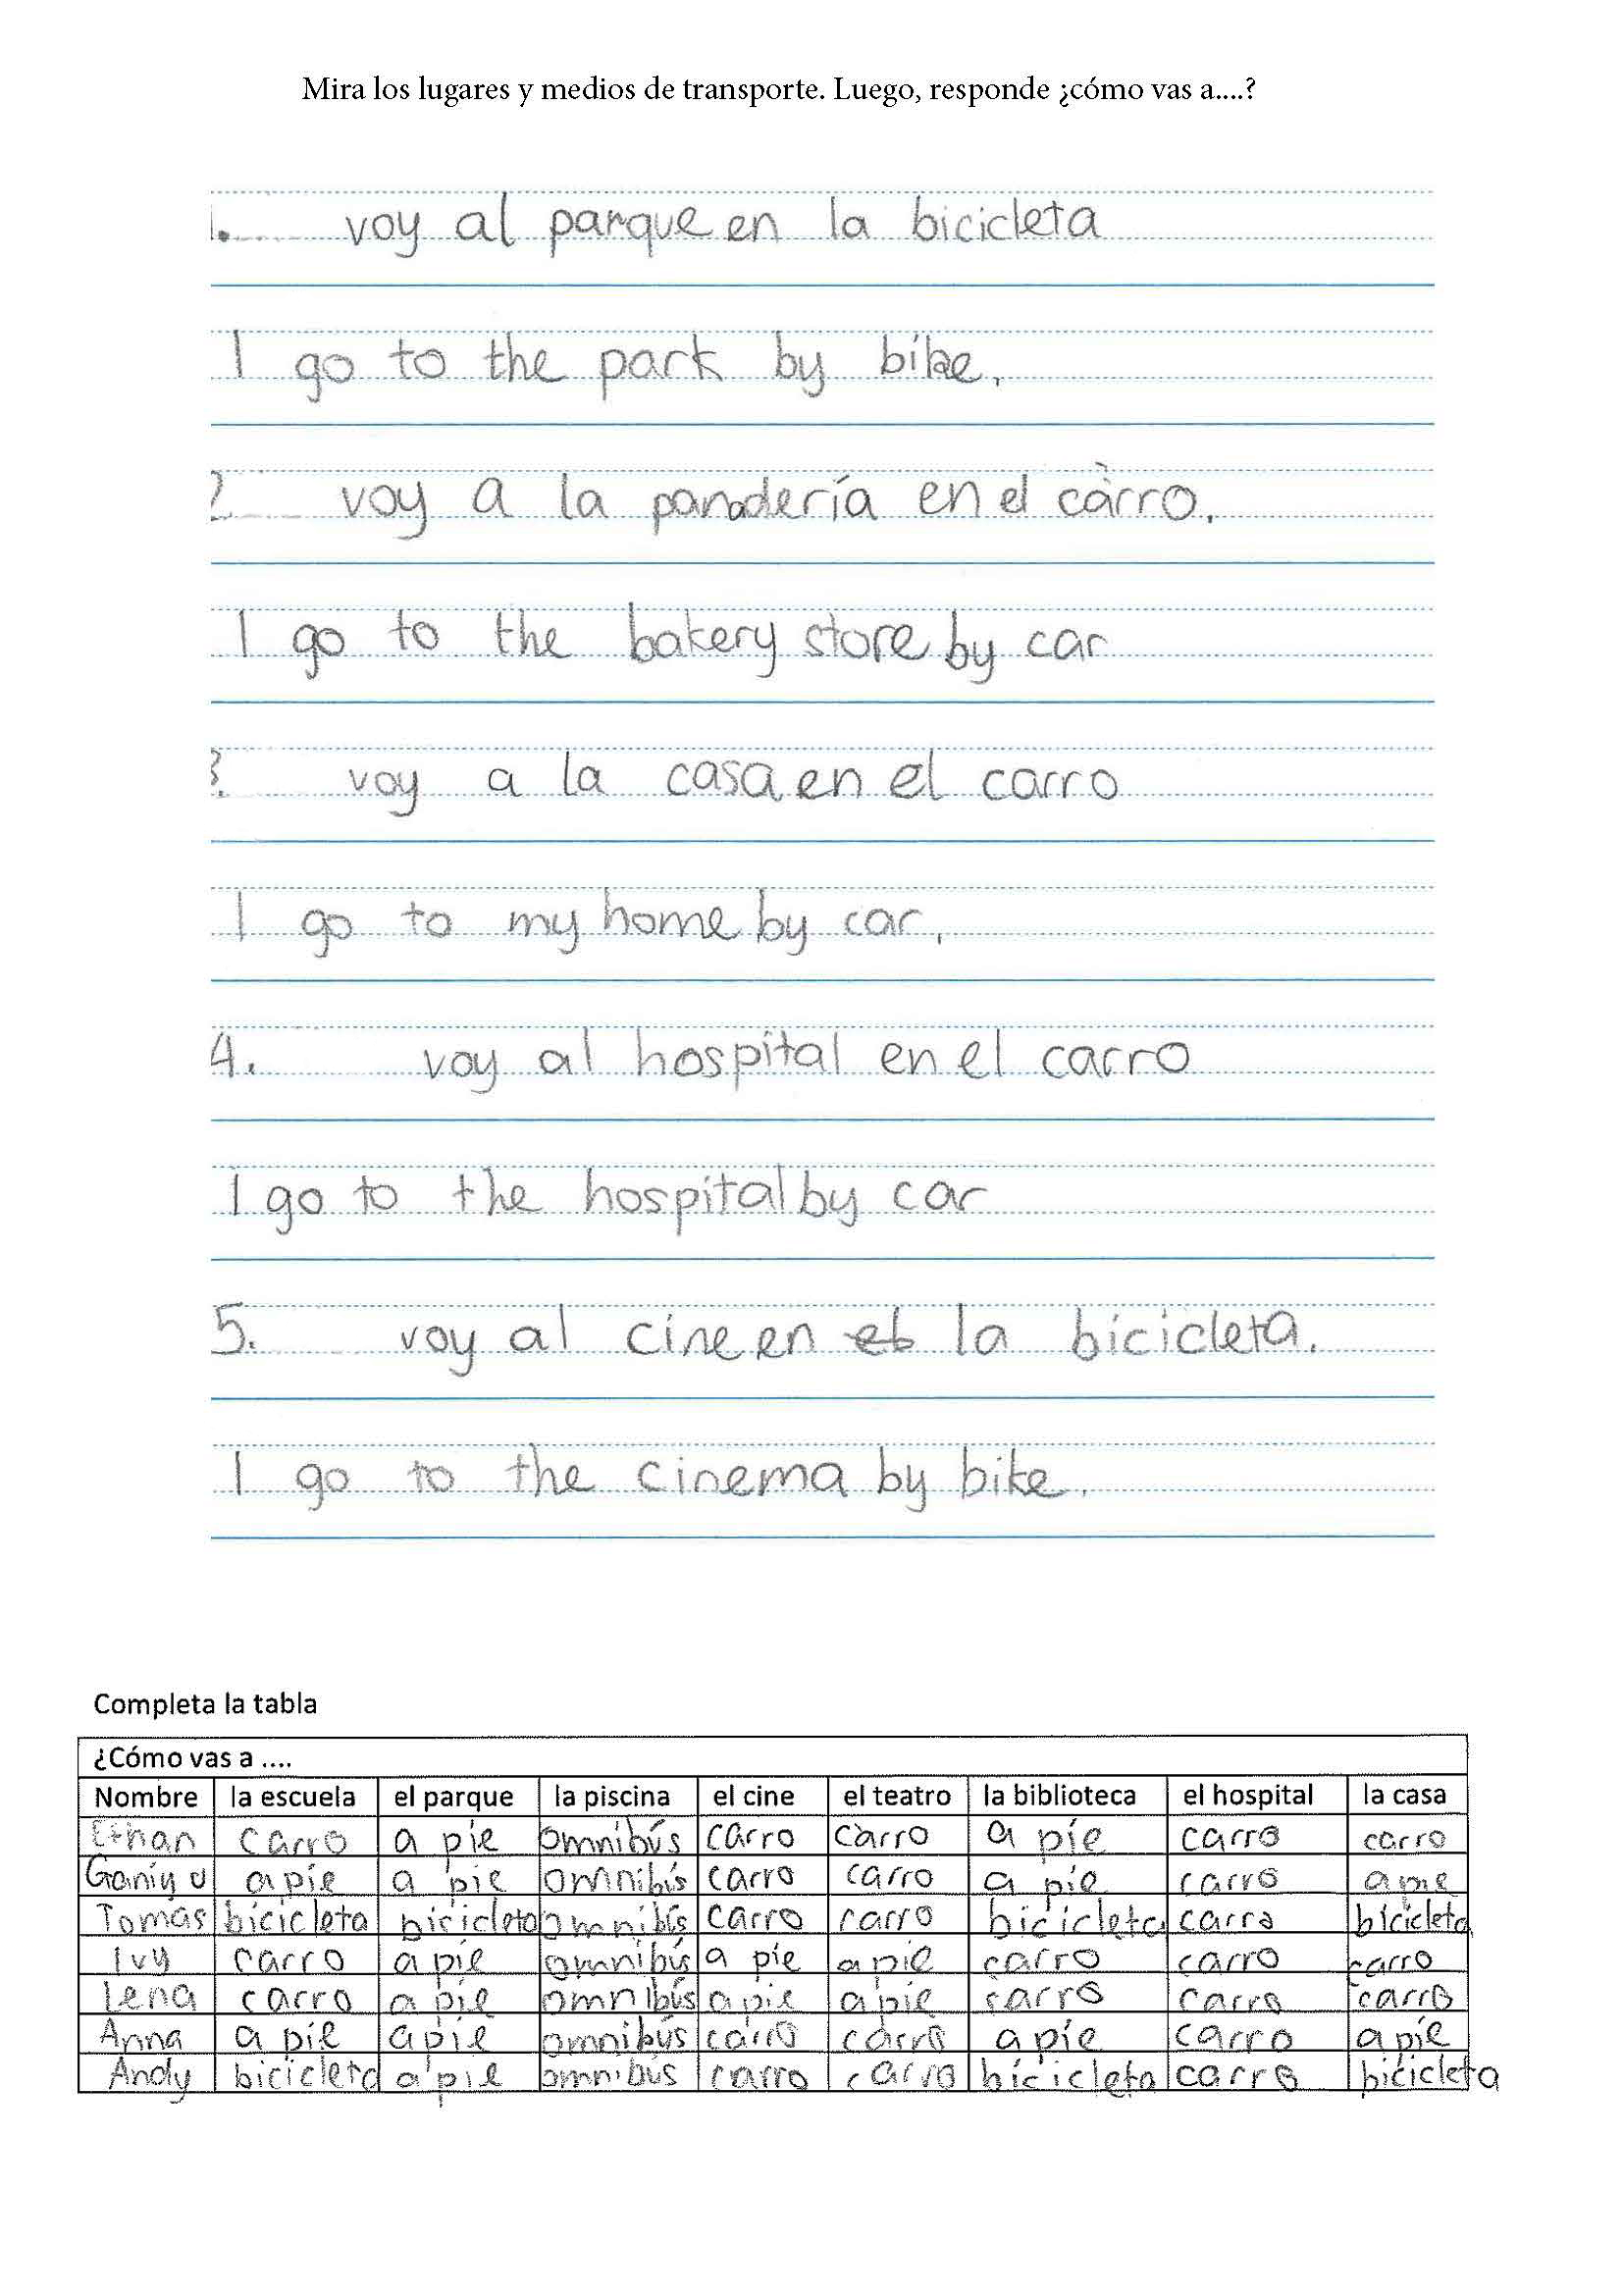 Mira los lugares y medios de transporte. Luego, responde ¿cómo vas a....?
1. voy al parque en la bicicleta
I go to the park by bike.
2 voy a la panadería en el càrro.
I go to the bakery store by car
3. voy a la casa en el carro
I go to my home by car.
4. voy al hospital en el carro
I go to the hospital by car
5. voy al cine en la bicicleta.
I go to the cinema by bike.
Completa la tabla
¿Cómo vas a ....
Nombre la escuela el parque la piscina el cine el teatro la biblioteca el hospital la casa
Ethan carro a pie omnibús carro càrro a píe carro carro
a píe a pie omnibús carro carro a píe carro a pie
Tomas bicicleta bicicleta omnibús carro carro bicicleta carro bicicleta
Ivy carro a pie omnibús a pie a pie carro carro carro
Lena carro a pie omnibús a pie a pie carro carro carro
Anna a píe a pie omnibús carro carro a píe carro a píe
Andy bicicleta a pie omnibús carro carro bicicleta carro bicicleta